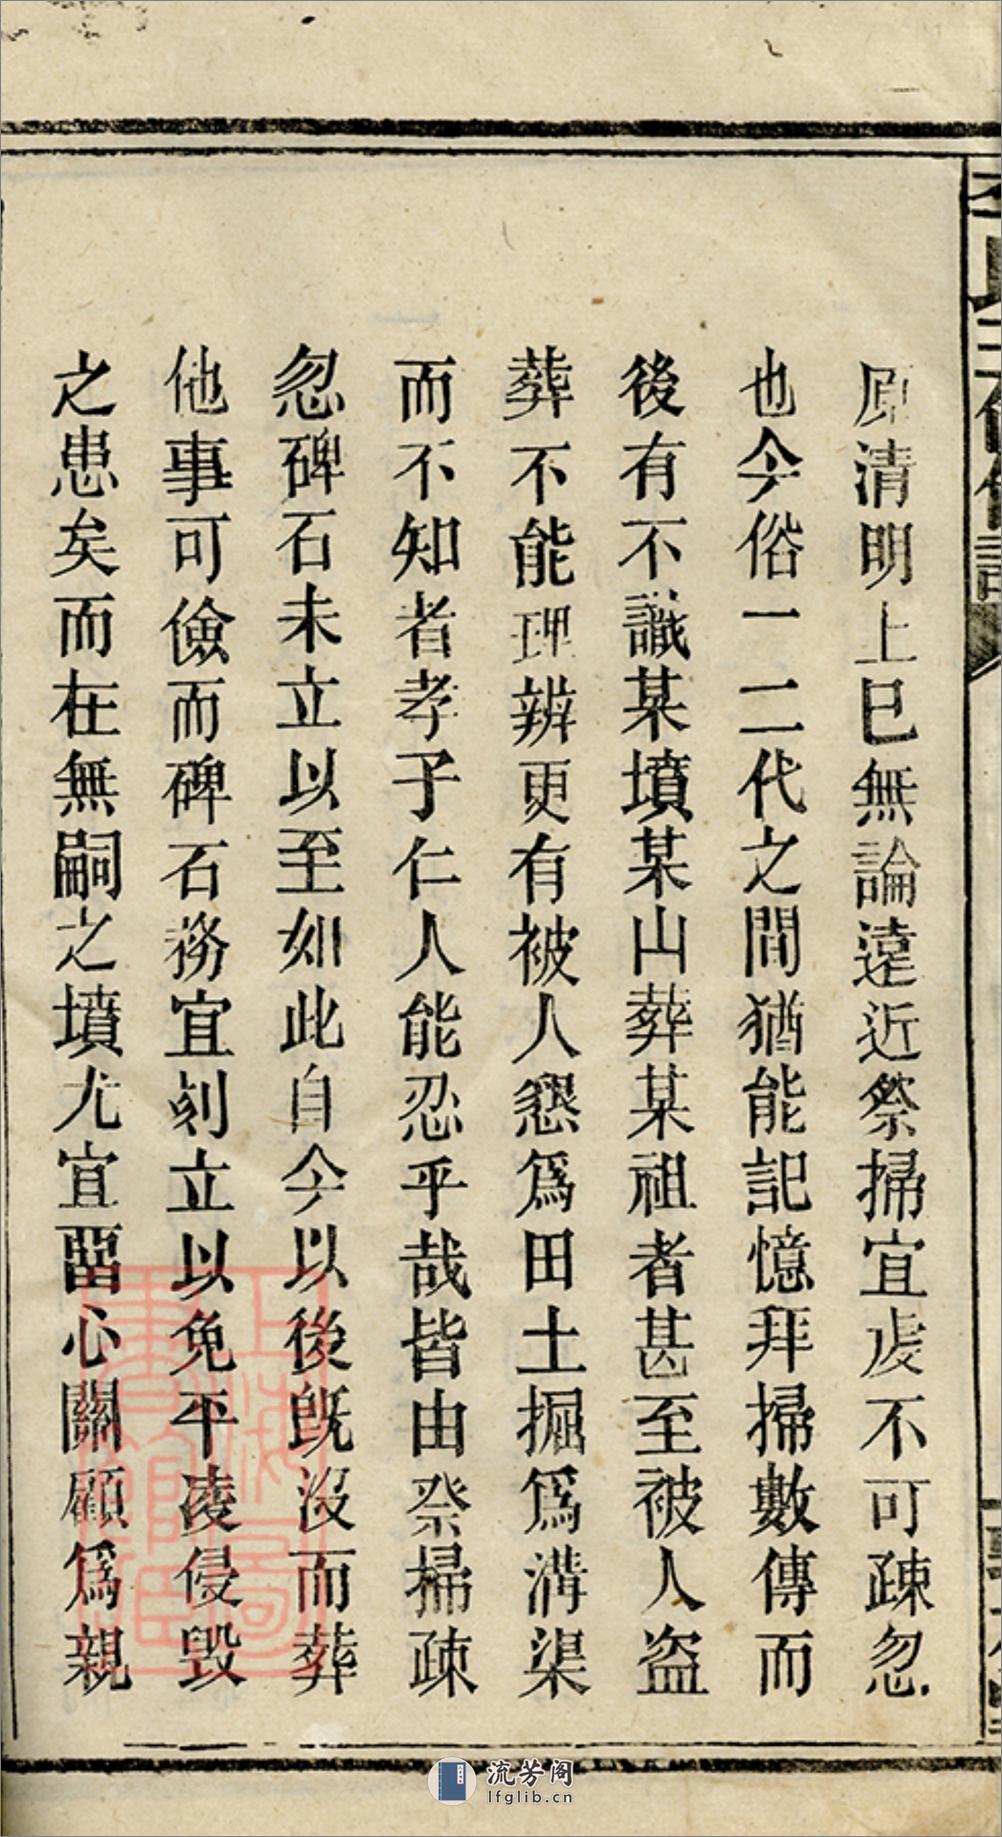 原清明上巳無論遠近祭掃宜虔不可疎忽
也今俗一二代之間猶能記憶拜掃數傳而
後有不識某墳某山葬某祖者甚至被人盜
葬不能理辨更有被人懇爲田土掘爲溝渠
而不知者孝子仁人能忍乎哉皆由祭掃疎
忽碑石未立以至如此自今以後旣沒而葬
他事可儉而碑石務宜刻立以免平凌侵毀
之患矣而在無嗣之墳尤宜畱心關顧爲親
流芳阁
lfglib.cn